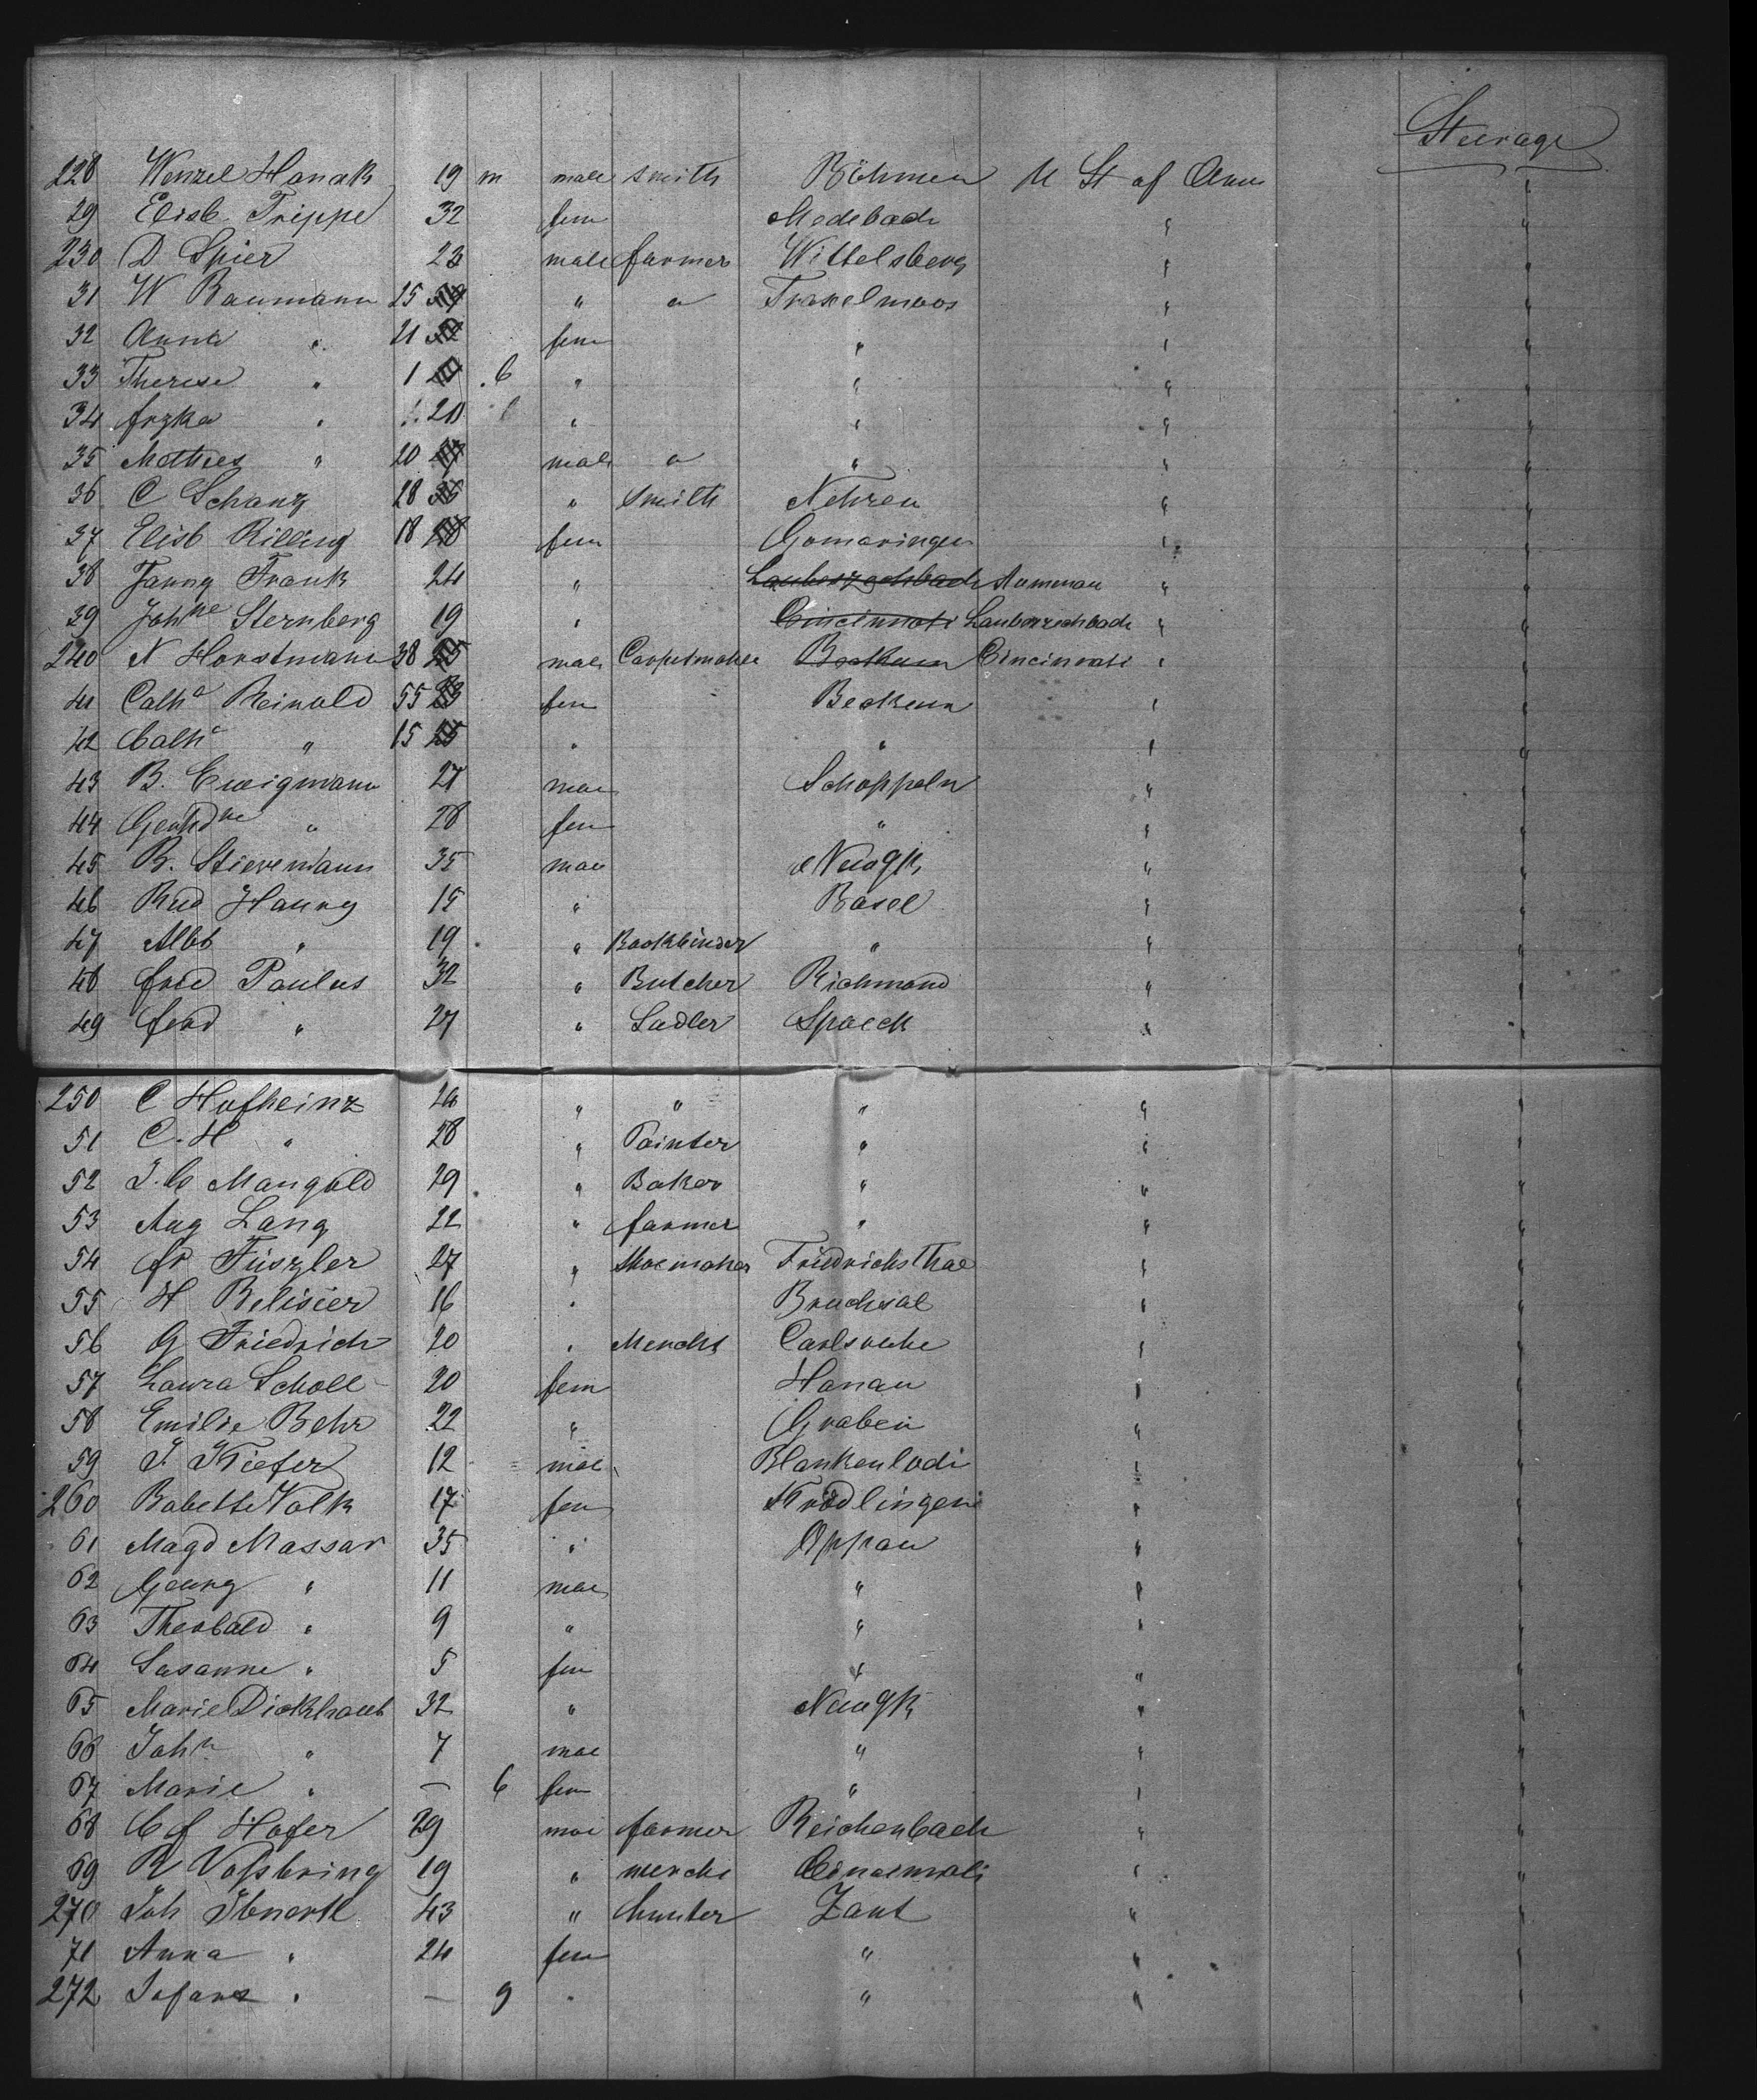 Steerage
228 Wenzel Hanak 19 m male smith Böhmen U St of Am
29 Elisb. Trippe 32 fem Medebach "
230 D Spier 23 male farmer Wittelsberg "
31 W Baumann 25 " " Traxelmoos "
32 Anna " 21 fem " "
33 Therese " 1 6 " " "
34 frzka " 20 " " "
35 Mathies " 20 male " " "
36 C Schanz 28 " smith Nehren "
37 Elisb Rilling 18 fem Gomaringen "
38 Fanny Frank 24 " "
39 Johne Sternberg 19 " Cincinnati "
240 N Horstmann 38 male Carpetmaker Beckum Cincinnati "
41 Catha Reinold 55 fem Beckum "
42 Catha " 15 " " "
43 B. Ewigmann 27 mal Schoppeln "
44 " 28 fem " "
45 B. Stievemann 35 mal "
46 Rud Hauny 15 " Basel "
47 Albt " 19 " Bookbinder " "
48 fred Paulus 32 " Butcher Richmond "
49 ferd " 27 " Sadler Spoeck "
250 C Hofheinz 24 " " " "
51 C. H " 28 " Painter " "
52 J. C Mangold 29 " Baker " "
53 Aug Lang 22 " farmer " "
54 fr Füszler 27 " Shoemaker Friedrichsthal "
55 H Belisier 16 " Bruchsal "
56 G Friedrich 20 " Merchs Carlsruhe "
57 Laura Scholl 20 fem Hanau "
58 Emilie Behr 22 " Graben "
59 J. Kiefer 12 mal Blankenloch "
260 Babette Volk 17 fem "
61 Magd Massar 35 " Oppau "
62 Georg " 11 mal " "
63 Theobald " 9 " " "
64 Susanne " 5 fem " "
65 Marie Dickhaut 32 " "
66 John " 7 mal " "
67 Marie " — 6 fem " "
68 C f Hofer 29 mal farmer Reichenbach "
69 R Vossbring 19 " merchs Cincinnati "
270 Joh 43 " hunter Zant "
71 Anna " 24 fem " "
272 " — 9 " " "